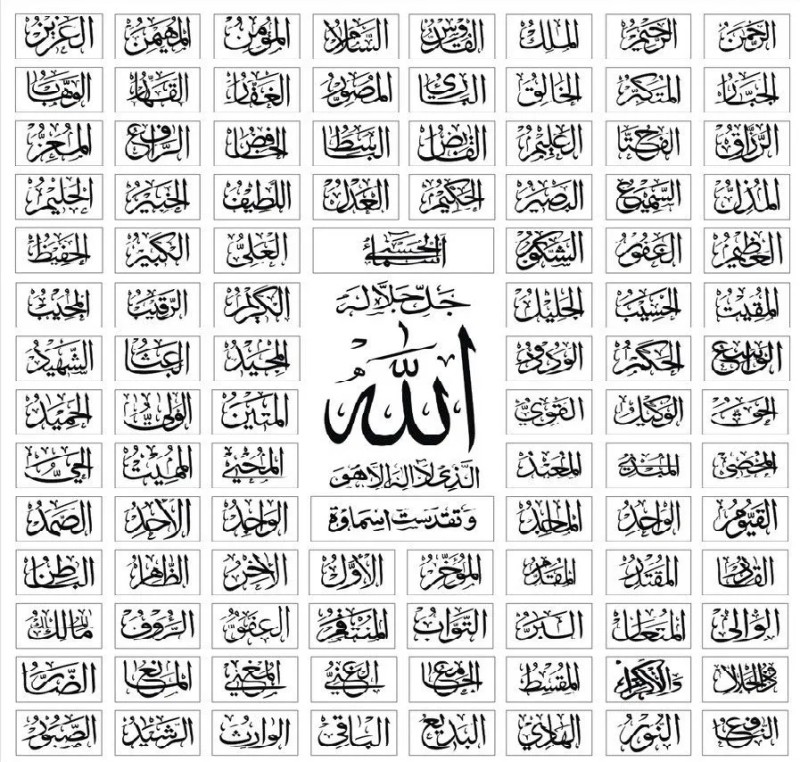 الرحمن الرحيم الملك القدوس السلام المؤمن المهيمن العزيز
الجبار المتكبر الخالق البارئ المصور الغفار القهار الوهاب
الرزاق الفتاح العليم القابض الباسط الخافض الرافع المعز
المذل السميع البصير الحكيم العدل اللطيف الخبير الحليم
العظيم الغفور الشكور اسماء الحسنى العلي الكبير الحفيظ
المقيت الحسيب الجليل جل جلاله الكريم الرقيب المجيب
الواسع الحكيم الودود الله المجيد الباعث الشهيد
الحق الوكيل القوي المتين الولي الحميد
المحصي المبدئ المعيد الذي لا اله الا هو المحيي المميت الحي
القيوم الواجد الماجد وتقدست اسماؤه الواحد الأحد الصمد
القادر المقتدر المقدم المؤخر الأول الآخر الظاهر الباطن
الوالي المتعال البر التواب المنتقم العفو الرؤوف مالك
ذوالجلال والاكرام المقسط الجامع الغني المغني المانع الضار
النافع النور الهادي البديع الباقي الوارث الرشيد الصبور